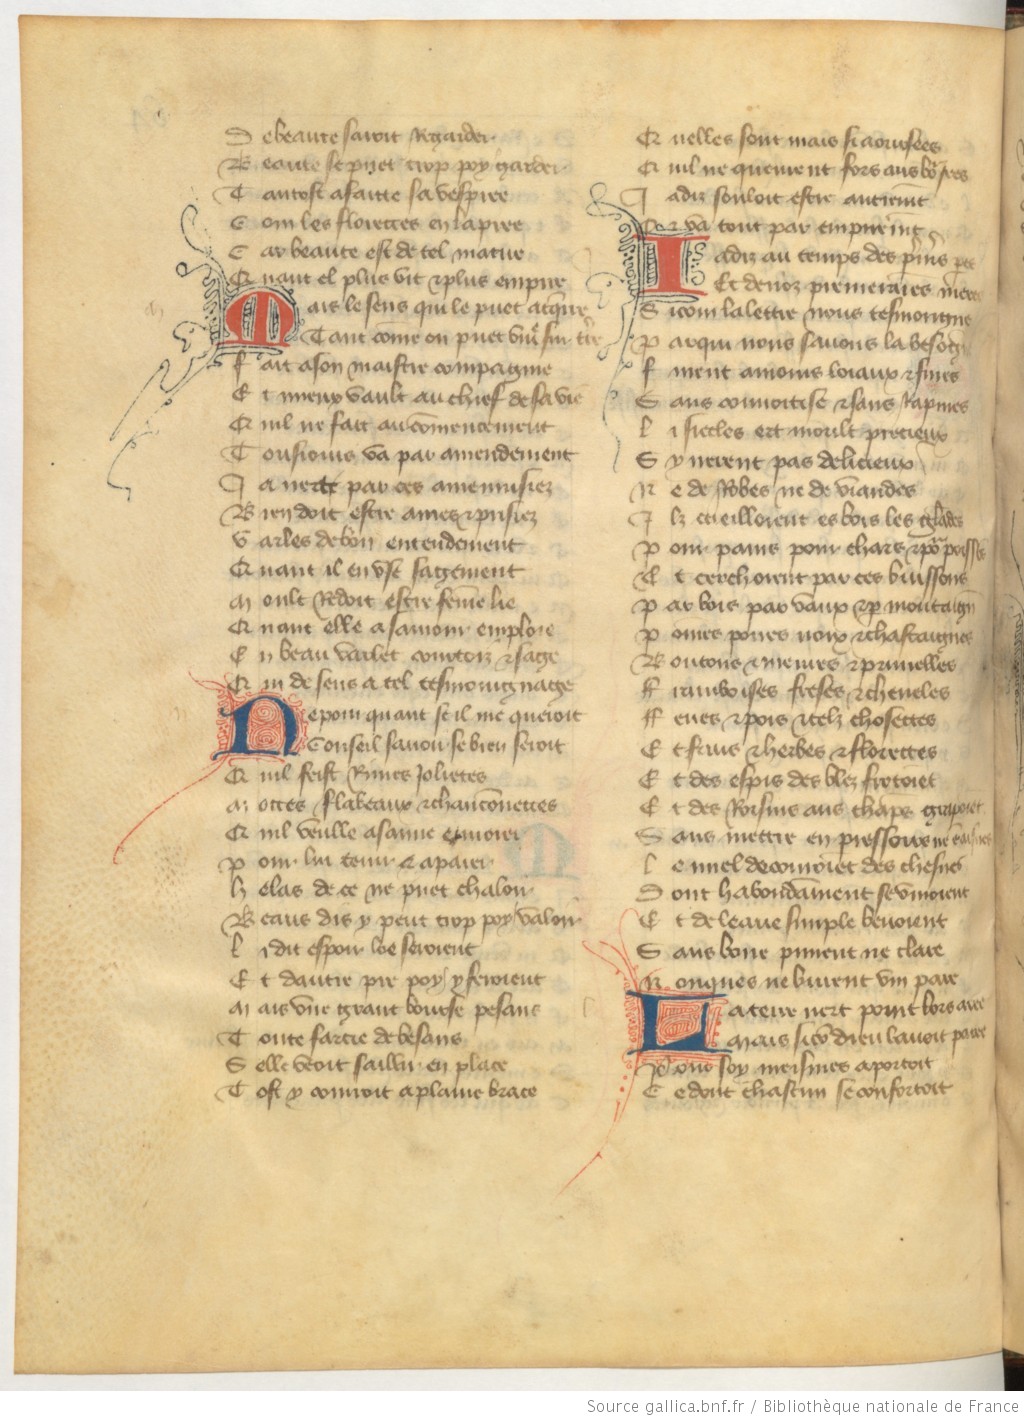 De beaute savoit Regarder
Beaute se puet trop poy garder
Tantost a faitte sa vespree
Com les florettes en la pree
Car beaute est de tel matire
Quant el plus vit & plus empire
Mais le sens qui le puet acquerre
Tant come on puet vivre sur terre
Fait a son maistre compagnie
Et mieux vault au chief de sa vie
Quil ne fait au comencement
Tousiours va par amendement
Ja nert par ces amenuisiez
Bien doit estre ames & prisiez
Varles de bon entendement
Quant il en vse sagement
Moult Redoit estre feme lie
Quant elle a samour emploie
En beau varlet courtoiz & sage
Qui de sens a tel tesmoingnage
Nepour quant se il me queroit
Conseil savoir se bien seroit
Quil feist Rimes Jolietes
Mottes flabeaux & chanconnettes
Quil veulle a samie envoier
Pour lui tenir & apaier
Helas de ce ne puet chaloir
Beaus dis y peut trop poy valoir
Li dit espoir loe seroient
Et dautre pre poy y feroient
Mais vne grant bourse pesans
Toute farcie de besans
Selle veoit saillir en place
Tost y courroit a plaine brace
Quelles sont mais si aorusees
Quil ne queurent fors aus bourses
Jadiz souloit estre autrement
Or va tout par empirement
Jadiz au temps des premiers peres
Et de noz premeraies meres
Sicom la lettre nous tesmongne
Par qui nous savons la besongne
Furent amours loiaux & fines
Sans couuoitise & sans Rapines
Li siecles ert moult precieux
Sy nerent pas delicieux
Ne de Robes ne de viandes
Ilz cueilloient es bois les glandes
Pour pains pour chars & pour poissons
Et cerchoient par ces buissons
Par bois par vaux & par montaignes
Pomes poires noix & chastaignes
Boutons & meures & prunelles
Framboises freses & ceneles
Feues & pois & telz chosettes
Et fruis & herbes & florettes
Et des espis des blez frotoient
Et des Roisins aus champs grapoient
Sans mettre en pressours ne
Le miel decouroiet des chesnes
Dont habondament se viuoient
Et de leaue simple beuoient
Sans bone piment ne clare
Nonques ne burent vin pare
La terre nert point lors aree
Mais sicom dieu lauoit paree
Par soy meismes aportoit
Ce dont chascun se confortoit
Source gallica.bnf.fr / Bibliothèque nationale de France